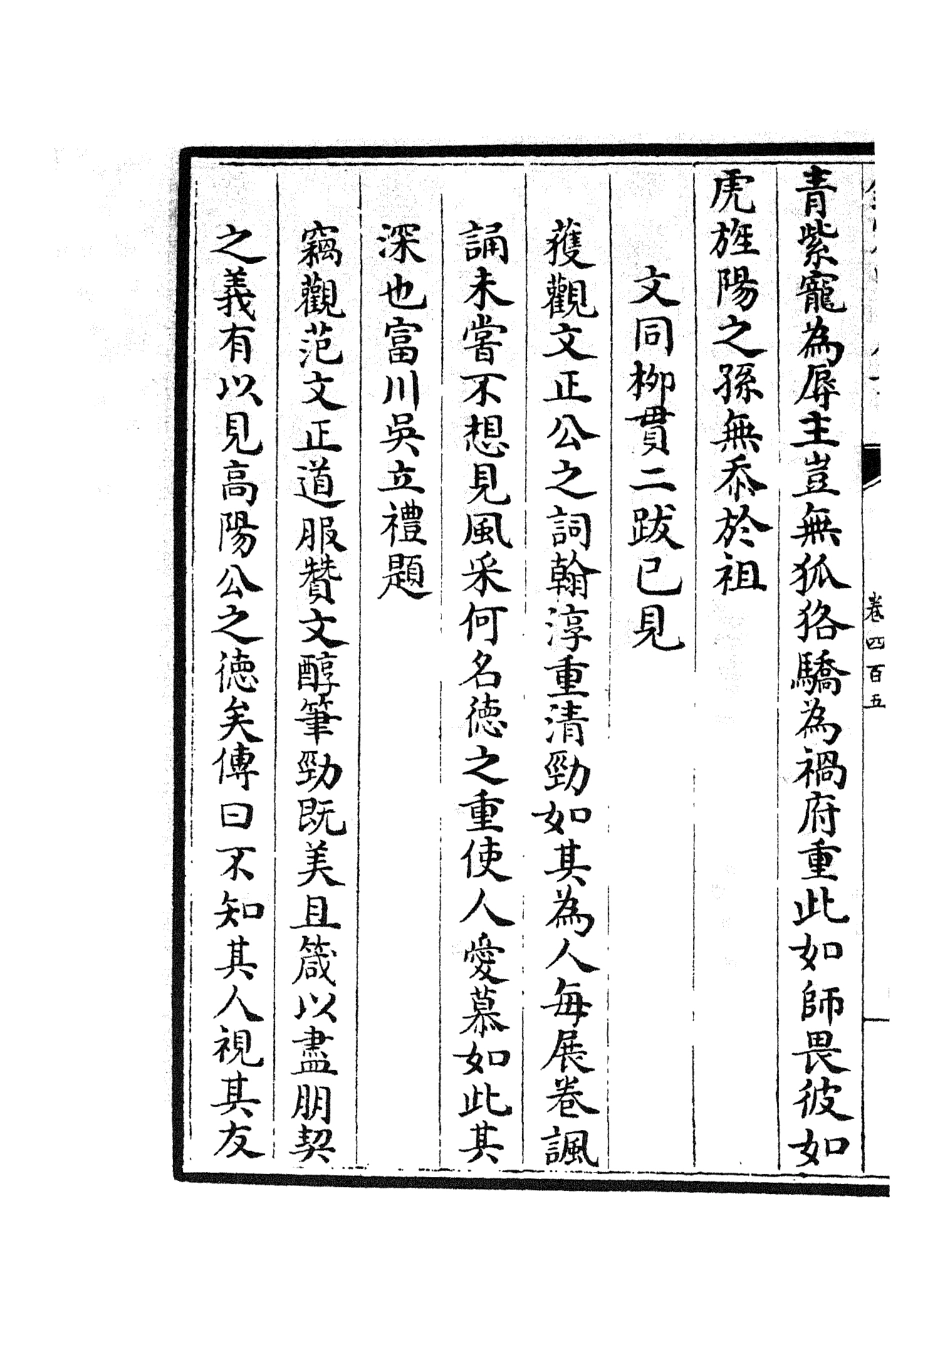 卷四百五
青紫寵為辱主豈無狐狢驕為禍府重此如師畏彼如
虎旌陽之孫無忝於祖
文同柳貫二跋已見
獲觀文正公之詞翰淳重清勁如其為人每展卷諷
誦未嘗不想見風采何名德之重使人愛慕如此其
深也富川吳立禮題
竊觀范文正道服贊文醇筆勁既美且箴以盡朋契
之義有以見高陽公之德矣傳曰不知其人視其友